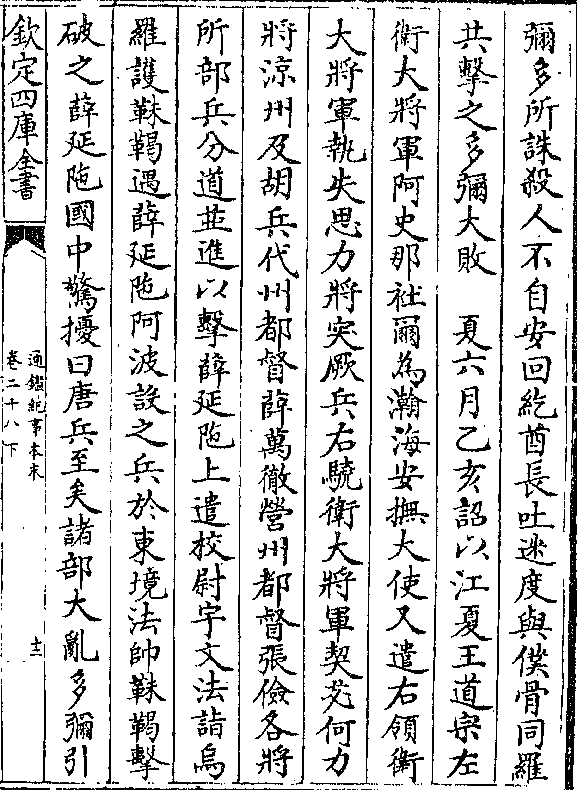 彌多所誅殺人不自安回紇酋長吐迷度與僕骨同羅
共擊之多彌大敗　夏六月乙亥詔以江夏王道宗左
衛大將軍阿史那社爾為瀚海安撫大使又遣右領衛
大將軍執失思力將突厥兵右驍衛大將軍契苾何力
將涼州及胡兵代州都督薛萬徹營州都督張儉各將
所部兵分道並進以擊薛延陁上遣校尉宇文法詣烏
羅護靺鞨遇薛延陁阿波設之兵於東境法帥靺鞨擊
破之薛延陁國中驚擾曰唐兵至矣諸部大亂多彌引
欽定四庫全書
通鑑紀事本末
卷二十八下
十三